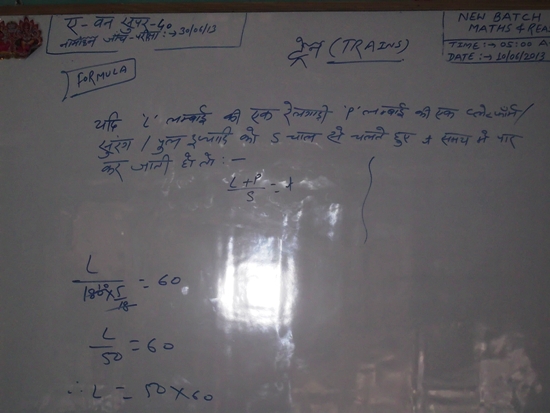 ए-वन सुपर-40
नामांकन जाँच-परीक्षा :→ 30/06/13
ट्रेन (TRAINS)
NEW BATCH
MATHS & REA
TIME :→ 05:00 A
DATE :→ 10/06/2013
FORMULA
यदि 'L' लम्बाई की एक रेलगाड़ी 'P' लम्बाई की एक प्लेटफॉर्म/
सुरंग / पुल इत्यादि को S चाल से चलते हुए t समय में पार
कर जाती हो तो :—
L+P/S = t
L/180×5/18 = 60
L/50 = 60
∴ L = 50×60